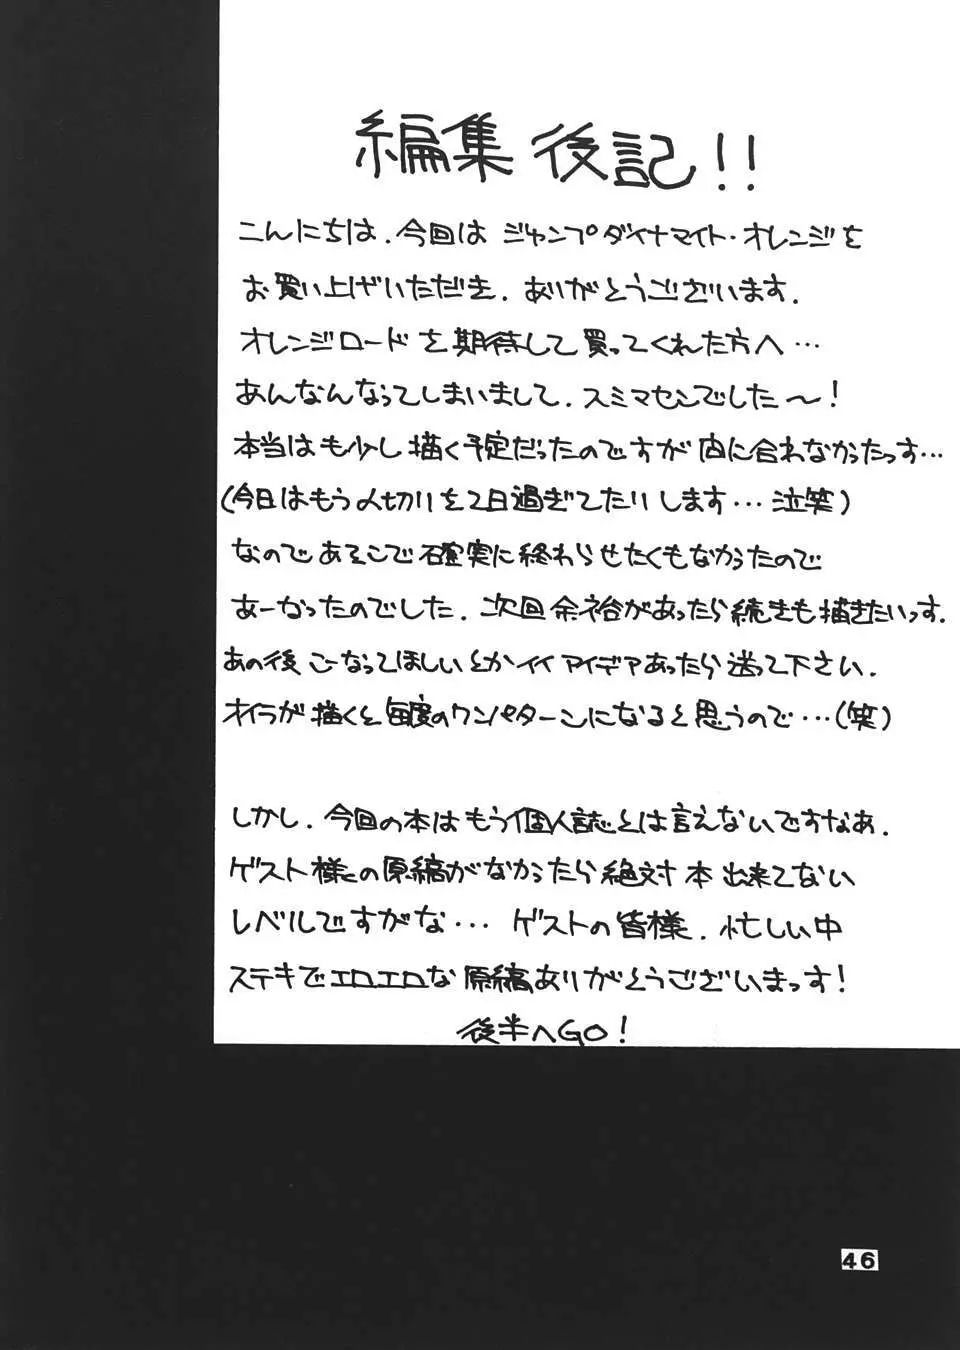 編集後記!!
こんにちは、今回はジャンプダイナマイト・オレンジを
お買い上げいただき、ありがとうございます。
オレンジロードを期待して買ってくれた方へ…
あんなんなってしまいまして、スミマセンでした〜!
本当はも少し描く予定だったのですが間に合わなかったっす…
(今日はもう〆切りを2日過ぎてたりします…泣笑)
なのであそこで確実に終わらせたくもなかったので
あーなったのでした。次回余裕があったら続きも描きたいっす。
あの後こーなってほしいとかイイアイデアあったら送って下さい。
オイラが描くと毎度のワンパターンになると思うので…(笑)
しかし、今回の本はもう個人誌とは言えないですなあ。
ゲスト様の原稿がなかったら絶対本出来てない
レベルですがな… ゲストの皆様、忙しい中
ステキでエロエロな原稿ありがとうございまっす!
後半へGO!
46